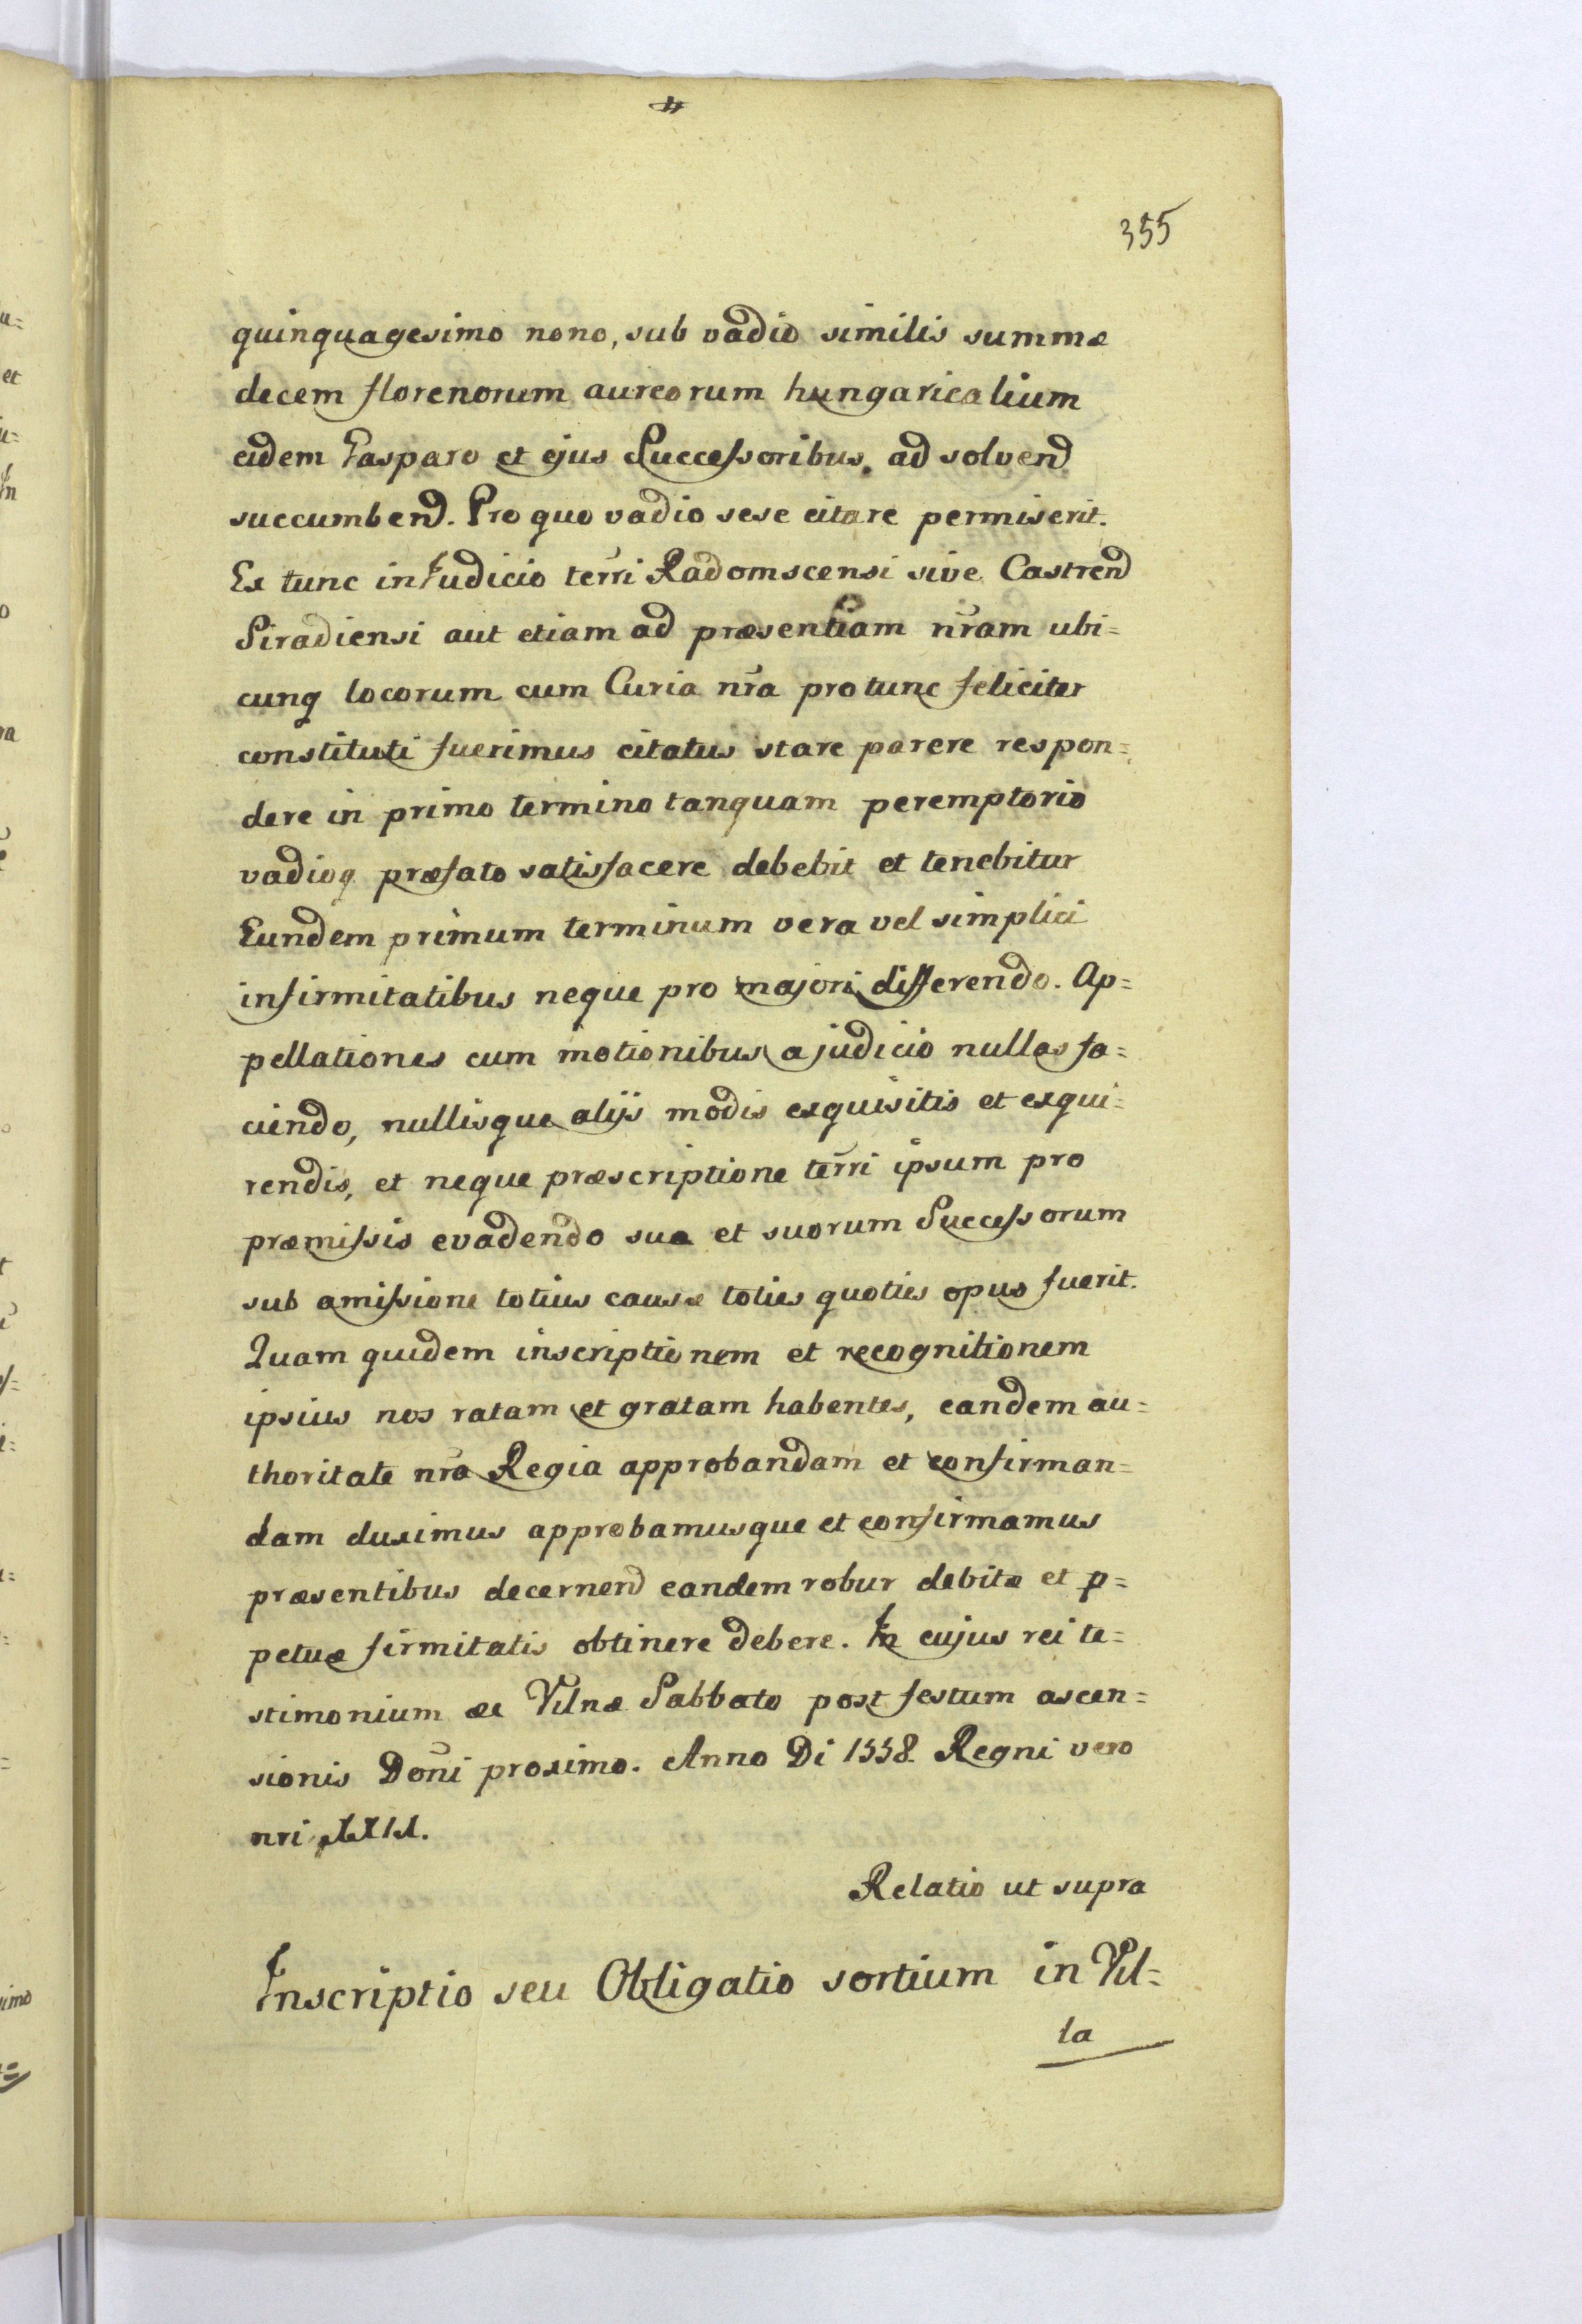 355
quinquagesimo nono, sub vadio similis summæ
decem florenorum aureorum hungaricalium
eidem Gasparo et ejus Successoribus. ad solvend
succumbend. Pro quo vadio sese citare permiserit.
Ex tunc in Iudicio terri Radomscensi sive Castrend
Siradiensi aut etiam ad præsentiam nram ubi=
cunq locorum cum Curia nra protunc feliciter
constituti fuerimus citatus stare parere respon=
dere in primo termino tanquam peremptorio
vadioq præfato satisfacere debebit et tenebitur
Eundem primum terminum vera vel simplici
infirmitatibus neque pro majori differendo. Ap=
pellationes cum motionibus a judicio nullas fa=
ciendo, nullisque alijs modis exquisitis et exqui=
rendis, et neque præscriptione terri ipsum pro
præmissis evadendo sua et suorum Successorum
sub amissione totius causæ toties quoties opus fuerit.
Quam quidem inscriptionem et recognitionem
ipsius nos ratam et gratam habentes, eandem au=
thoritate nra Regia approbandam et confirman=
dam duximus approbamusque et confirmamus
præsentibus decernend eandem robur debitæ et p=
petuæ firmitatis obtinere debere. In cujus rei te=
stimonium æ Vilnæ Sabbato post festum ascen=
sionis Doni proximo. Anno Di 1558 Regni vero
nri
Relatio ut supra
Inscriptio seu Obligatio sortium in Vil=
la